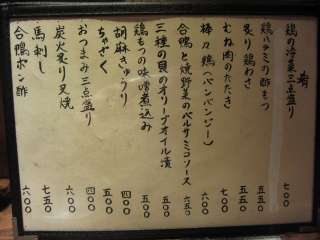 肴
鶏の冷菜三点盛り 七〇〇
鶏ハラミの酢もつ 五五〇
炙り鶏わさ 五五〇
むね肉のたたき 七〇〇
棒々鶏(バンバンジー) 六〇〇
合鴨と焼野菜のバルサミコソース 六五〇
三種の貝のオリーブオイル漬 五五〇
鶏もつの味噌煮込み 五〇〇
胡麻きゅうり 四〇〇
ちくざく 五〇〇
おつまみ三点盛り 四〇〇
炭火炙り叉焼 六〇〇
馬刺し 七五〇
合鴨ポン酢 六〇〇